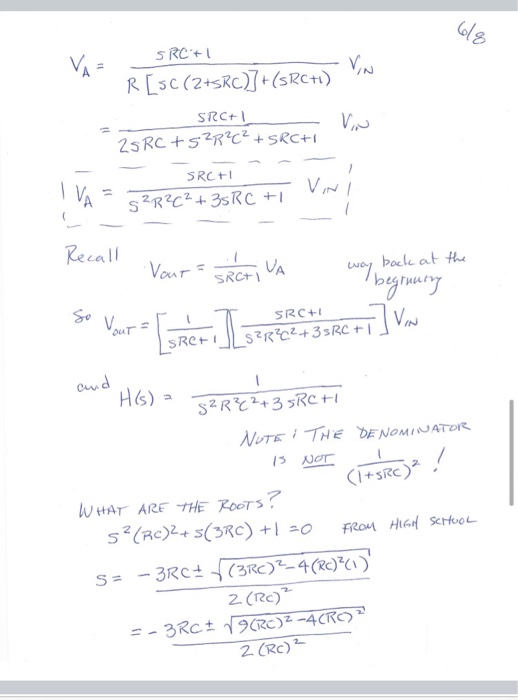 6/8
V_A = (SRC+1) / (R[SC(2+SRC)]+(SRC+1)) V_IN
= (SRC+1) / (2SRC + S²R²C² + SRC+1) V_IN
V_A = (SRC+1) / (S²R²C² + 3SRC + 1) V_IN
Recall V_OUT = 1/(SRC+1) V_A way back at the beginning
So V_OUT = [1/(SRC+1)][(SRC+1)/(S²R²C²+3SRC+1)] V_IN
and H(s) = 1/(S²R²C²+3SRC+1)
NOTE: THE DENOMINATOR
IS NOT 1/(1+SRC)² !
WHAT ARE THE ROOTS?
S²(RC)²+S(3RC)+1=0 FROM HIGH SCHOOL
S = (-3RC ± √((3RC)²-4(RC)²(1))) / (2(RC)²)
= (-3RC ± √(9(RC)²-4(RC)²)) / (2(RC)²)